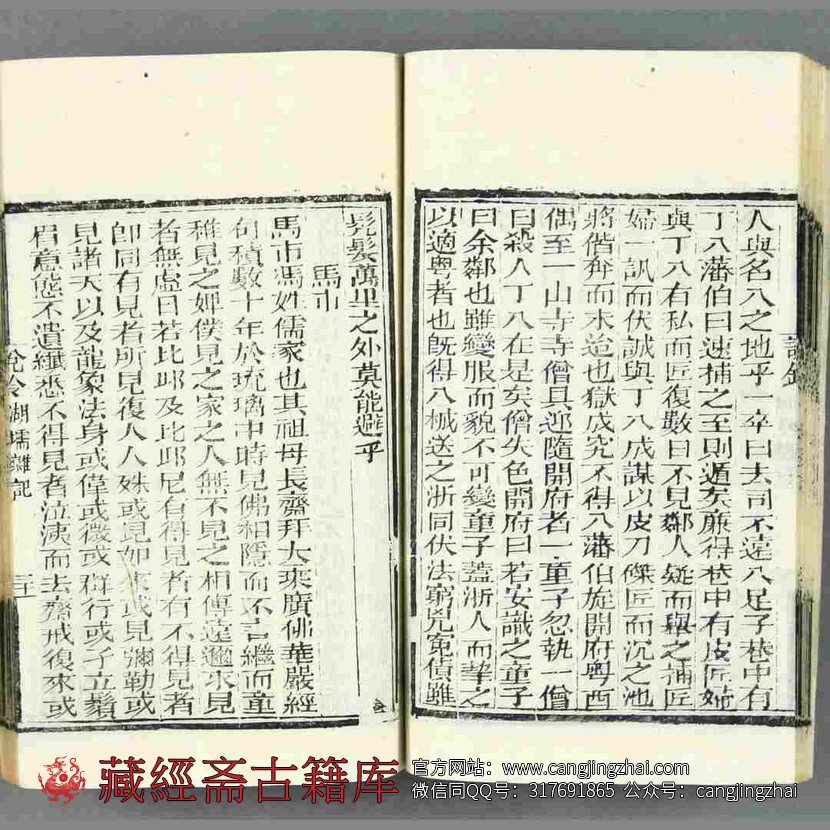 人與名八之地乎一卒曰去司不遠八足子巷中有
丁八藩伯曰速捕之至則遁矣廉得巷中有皮匠姑
與丁八有私而匠復數日不見鄰人疑而與之捕匠
婦一訊而伏誠與丁八成謀以皮刀磔匠而沉之池
將偕奔而未迨也獄成究不得八藩伯旋開府粤西
偶至一山寺寺僧具迎隨開府者一童子忽執一僧
曰殺人丁八在是矣僧失色開府曰若安識之童子
曰余鄰也雖變服而貌不可變童子蓋浙人而挈之
以適粤者也旣得八械送之浙同伏法窮兇寃債雖
髠髮萬里之外莫能避乎
馬市
馬市馮姓儒家也其祖母長齋拜大乘廣佛華嚴經
句積數十年於琉璃中時見佛相隱而不言繼而童
稚見之婢僕見之家之人無不見之相傳遠邇求見
者無虛日若比邱及比邱尼有得見者有不得見者
卽同有見者所見復人人殊或見如來或見彌勒或
見諸天以及龍象法身或偉或微或群行或孑立鬚
眉意態不遺纖悉不得見者泣洟而去齋戒復來或
湖壖雜記
藏經斋古籍库
官方网站：www.cangjingzhai.com
微信同QQ号：317691865 公众号：cangjingzhai